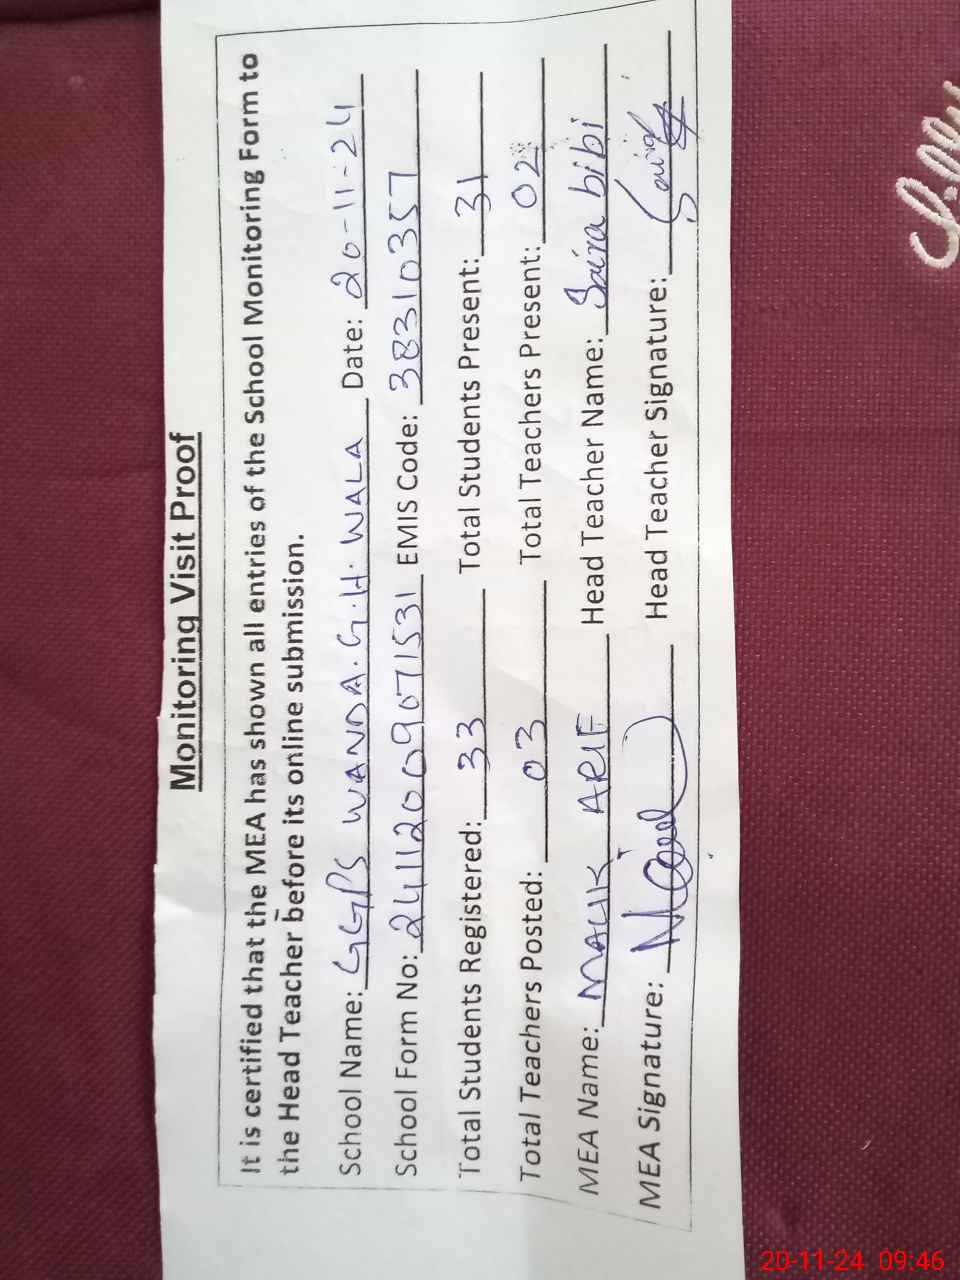 Monitoring Visit Proof
It is certified that the MEA has shown all entries of the School Monitoring Form to
the Head Teacher before its online submission.
School Name: GGPS WANDA. G.H. WALA Date: 20-11-24
School Form No: 24112009071531 EMIS Code: 38310357
Total Students Registered: 33 Total Students Present: 31
Total Teachers Posted: 03 Total Teachers Present: 02
MEA Name: MALIK ARIF Head Teacher Name: Saira bibi
MEA Signature: Head Teacher Signature:
20-11-24 09:46